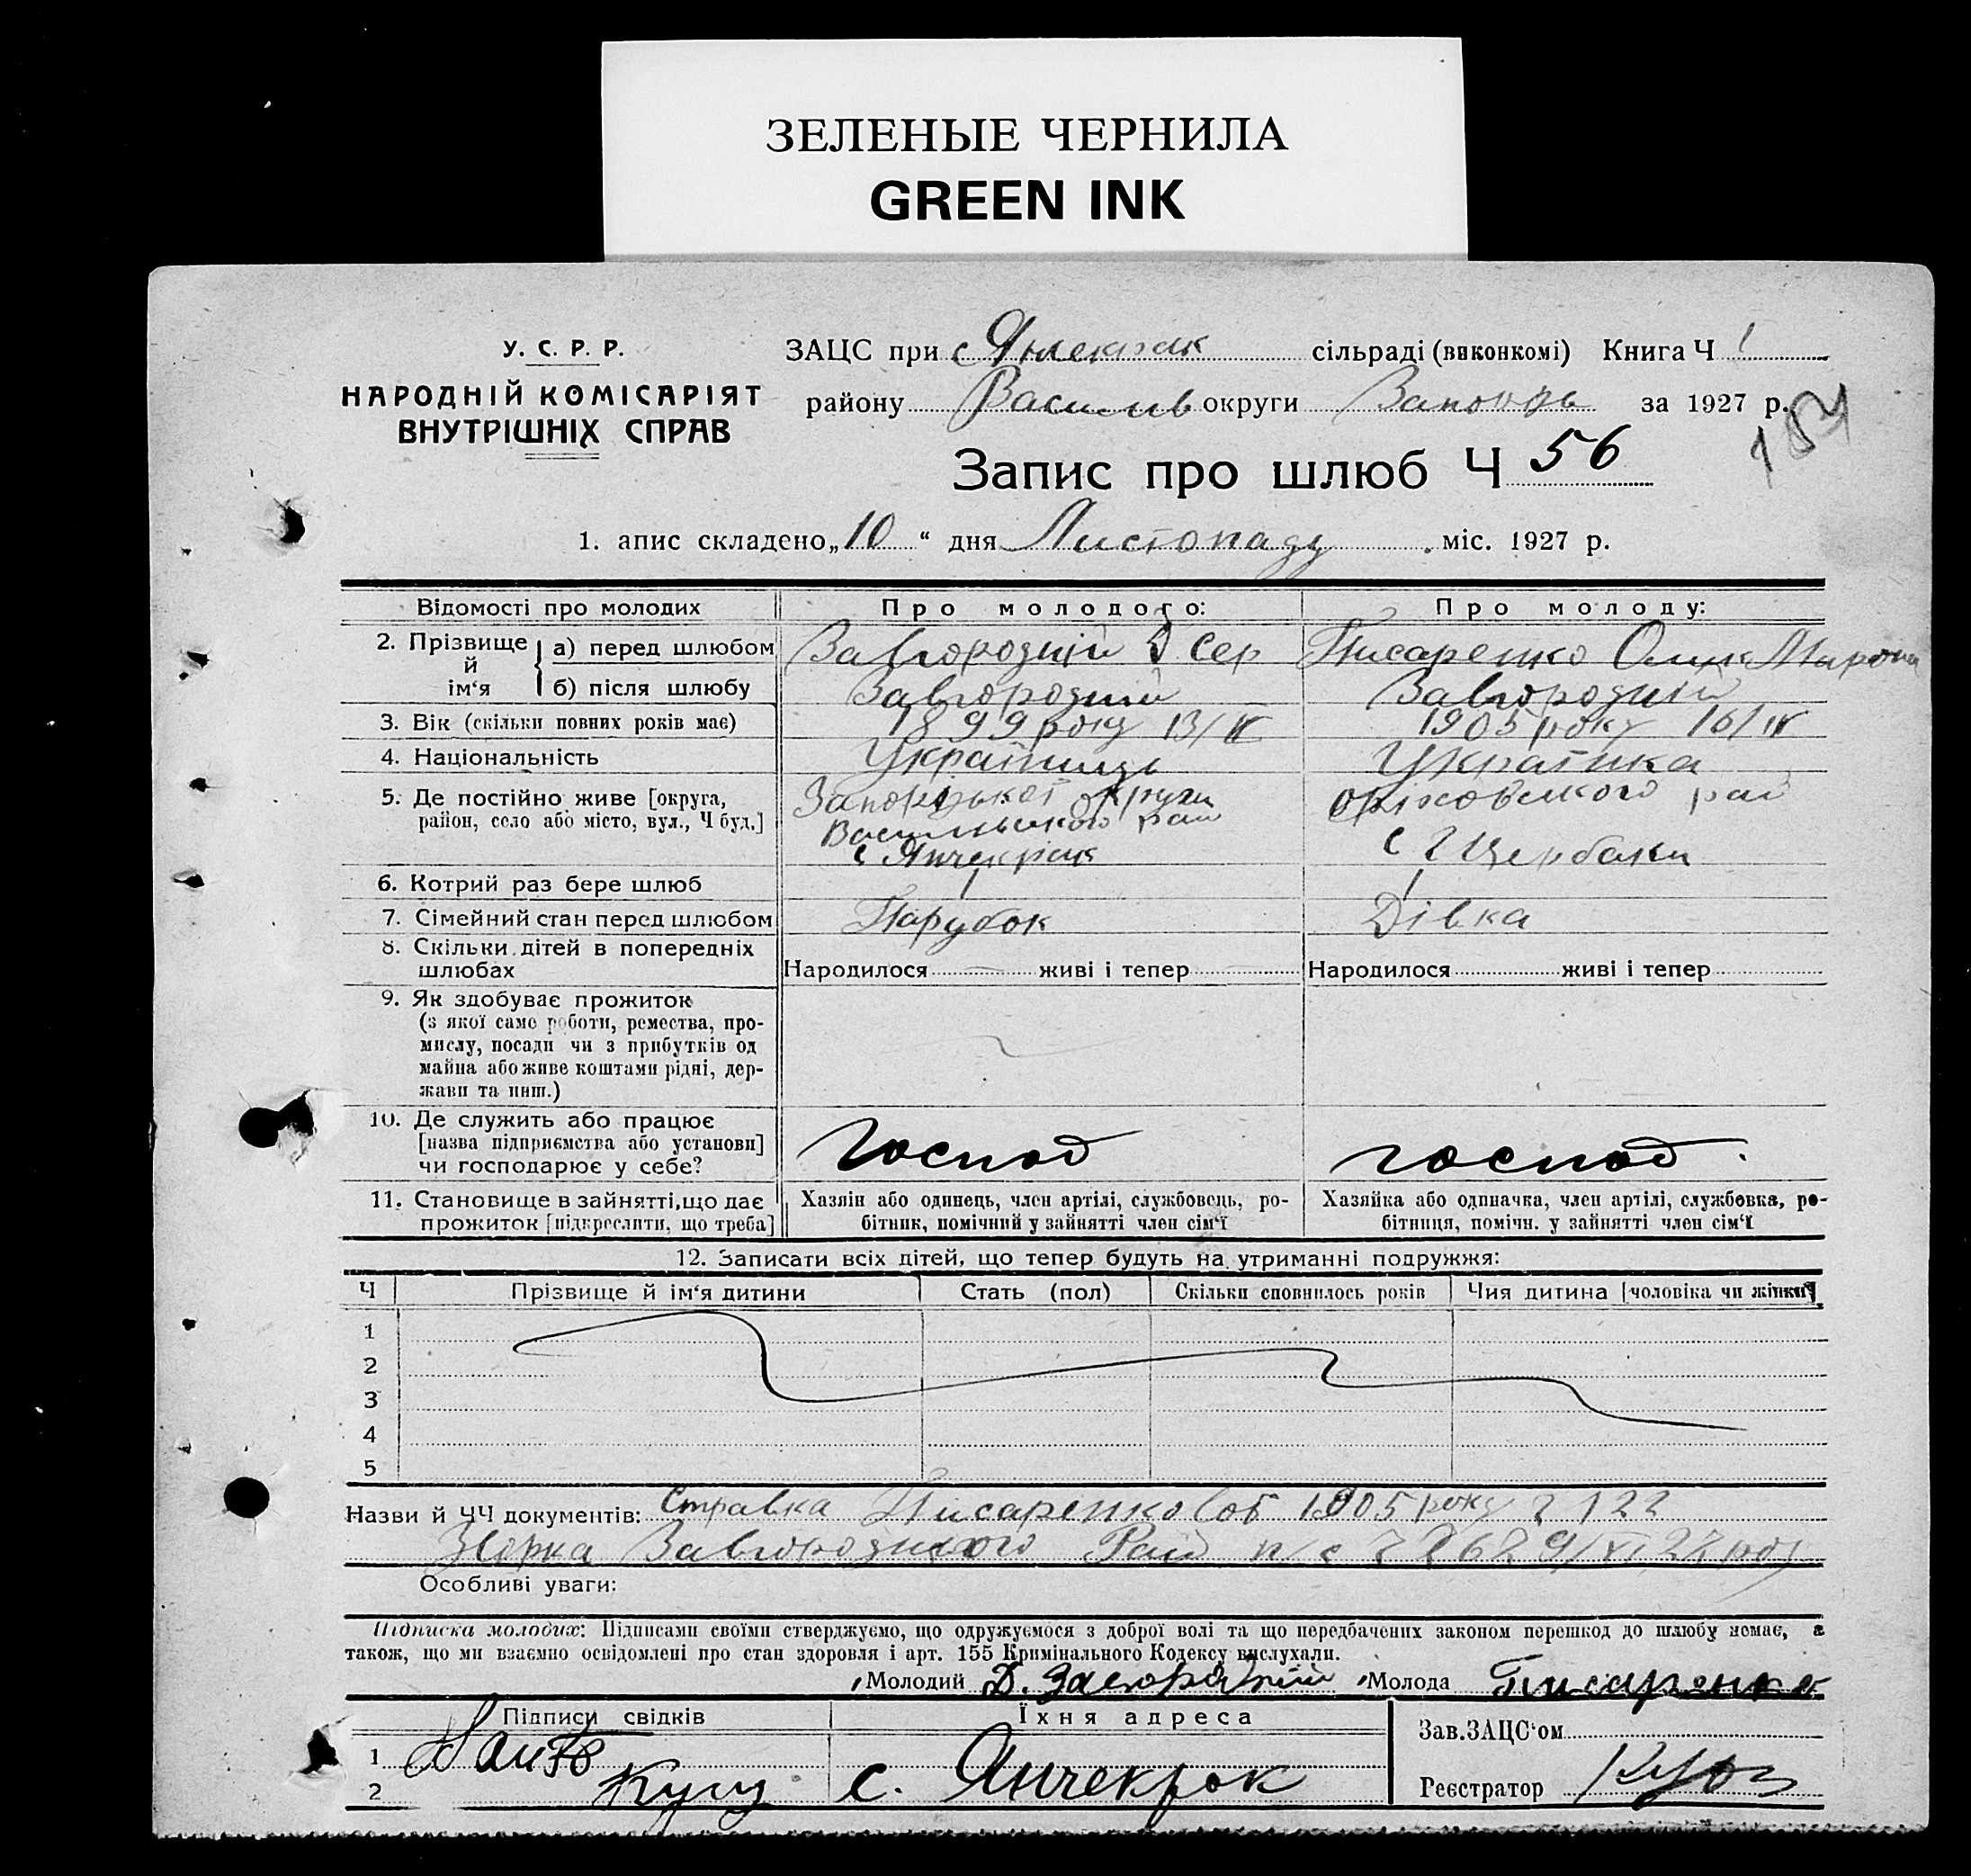 ЗЕЛЕНЫЕ ЧЕРНИЛА
GREEN INK
У. С. Р. Р.
НАРОДНІЙ КОМІСАРІЯТ
ВНУТРІШНІХ СПРАВ
ЗАЦС при с Янчекрак сільраді (виконкомі) Книга Ч 1
району Васиlив округи Запоріз за 1927 р.
184
Запис про шлюб Ч 56
1. апис складено „10“ дня Листопаду міс. 1927 р.
Відомості про молодих Про молодого: Про молоду:
2. Прізвище й ім‘я а) перед шлюбом Завгородній Д Сер Писаренко Мирона
б) після шлюбу Завгородній Завгородній
3. Вік (скільки повних років має) 1899 року 13/ІХ 1905 року 16/ІV
4. Національність Українець Українка
5. Де постійно живе [округа, район, село або місто, вул., Ч буд.] Запорізької округи Васильівского рай с Янчекрак Оріховского рай с Щербаки
6. Котрий раз бере шлюб 1 1
7. Сімейний стан перед шлюбом Парубок Дівка
8. Скільки дітей в попередніх шлюбах Народилося живі і тепер Народилося живі і тепер
9. Як здобуває прожиток
(з якої саме роботи, ремества, про-
мислу, посади чи з прибутків од
майна або живе коштами рідні, дер-
жави та инш.)
10. Де служить або працює
[назва підприємства або установи]
чи господарює у себе? Господ господ.
11. Становище в зайнятті, що дає прожиток [підкреслити, що треба] Хазяін або одинець, член артілі, службовець, ро-
бітник, помічний у зайнятті член сім‘ї
Хазяйка або одиначка, член артілі, службовка, ро-
бітниця, помічн. у зайнятті член сім‘ї
12. Записати всіх дітей, що тепер будуть на утриманні подружжя:
Ч Прізвище й ім‘я дитини Стать (пол) Скільки сповнилось років Чия дитина [чоловіка чи жінки]
1
2
3
4
5
Назви й ЧЧ документів: Справка Писаренковоі 1905 року 122
Завгороднього Рай
Особливі уваги:
Підписка молодих: Підписами своїми стверджуємо, що одружуємося з доброї волі та що передбачених законом перешкод до шлюбу немає, а
також, що ми взаємно освідомлені про стан здоровля і арт. 155 Кримінального Кодексу вислухали.
Молодий Д. Завгородній Молода Писаренко
Підписи свідків Їхня адреса Зав. ЗАЦС‘ом
1
2 с. Янчекрак Реєстратор